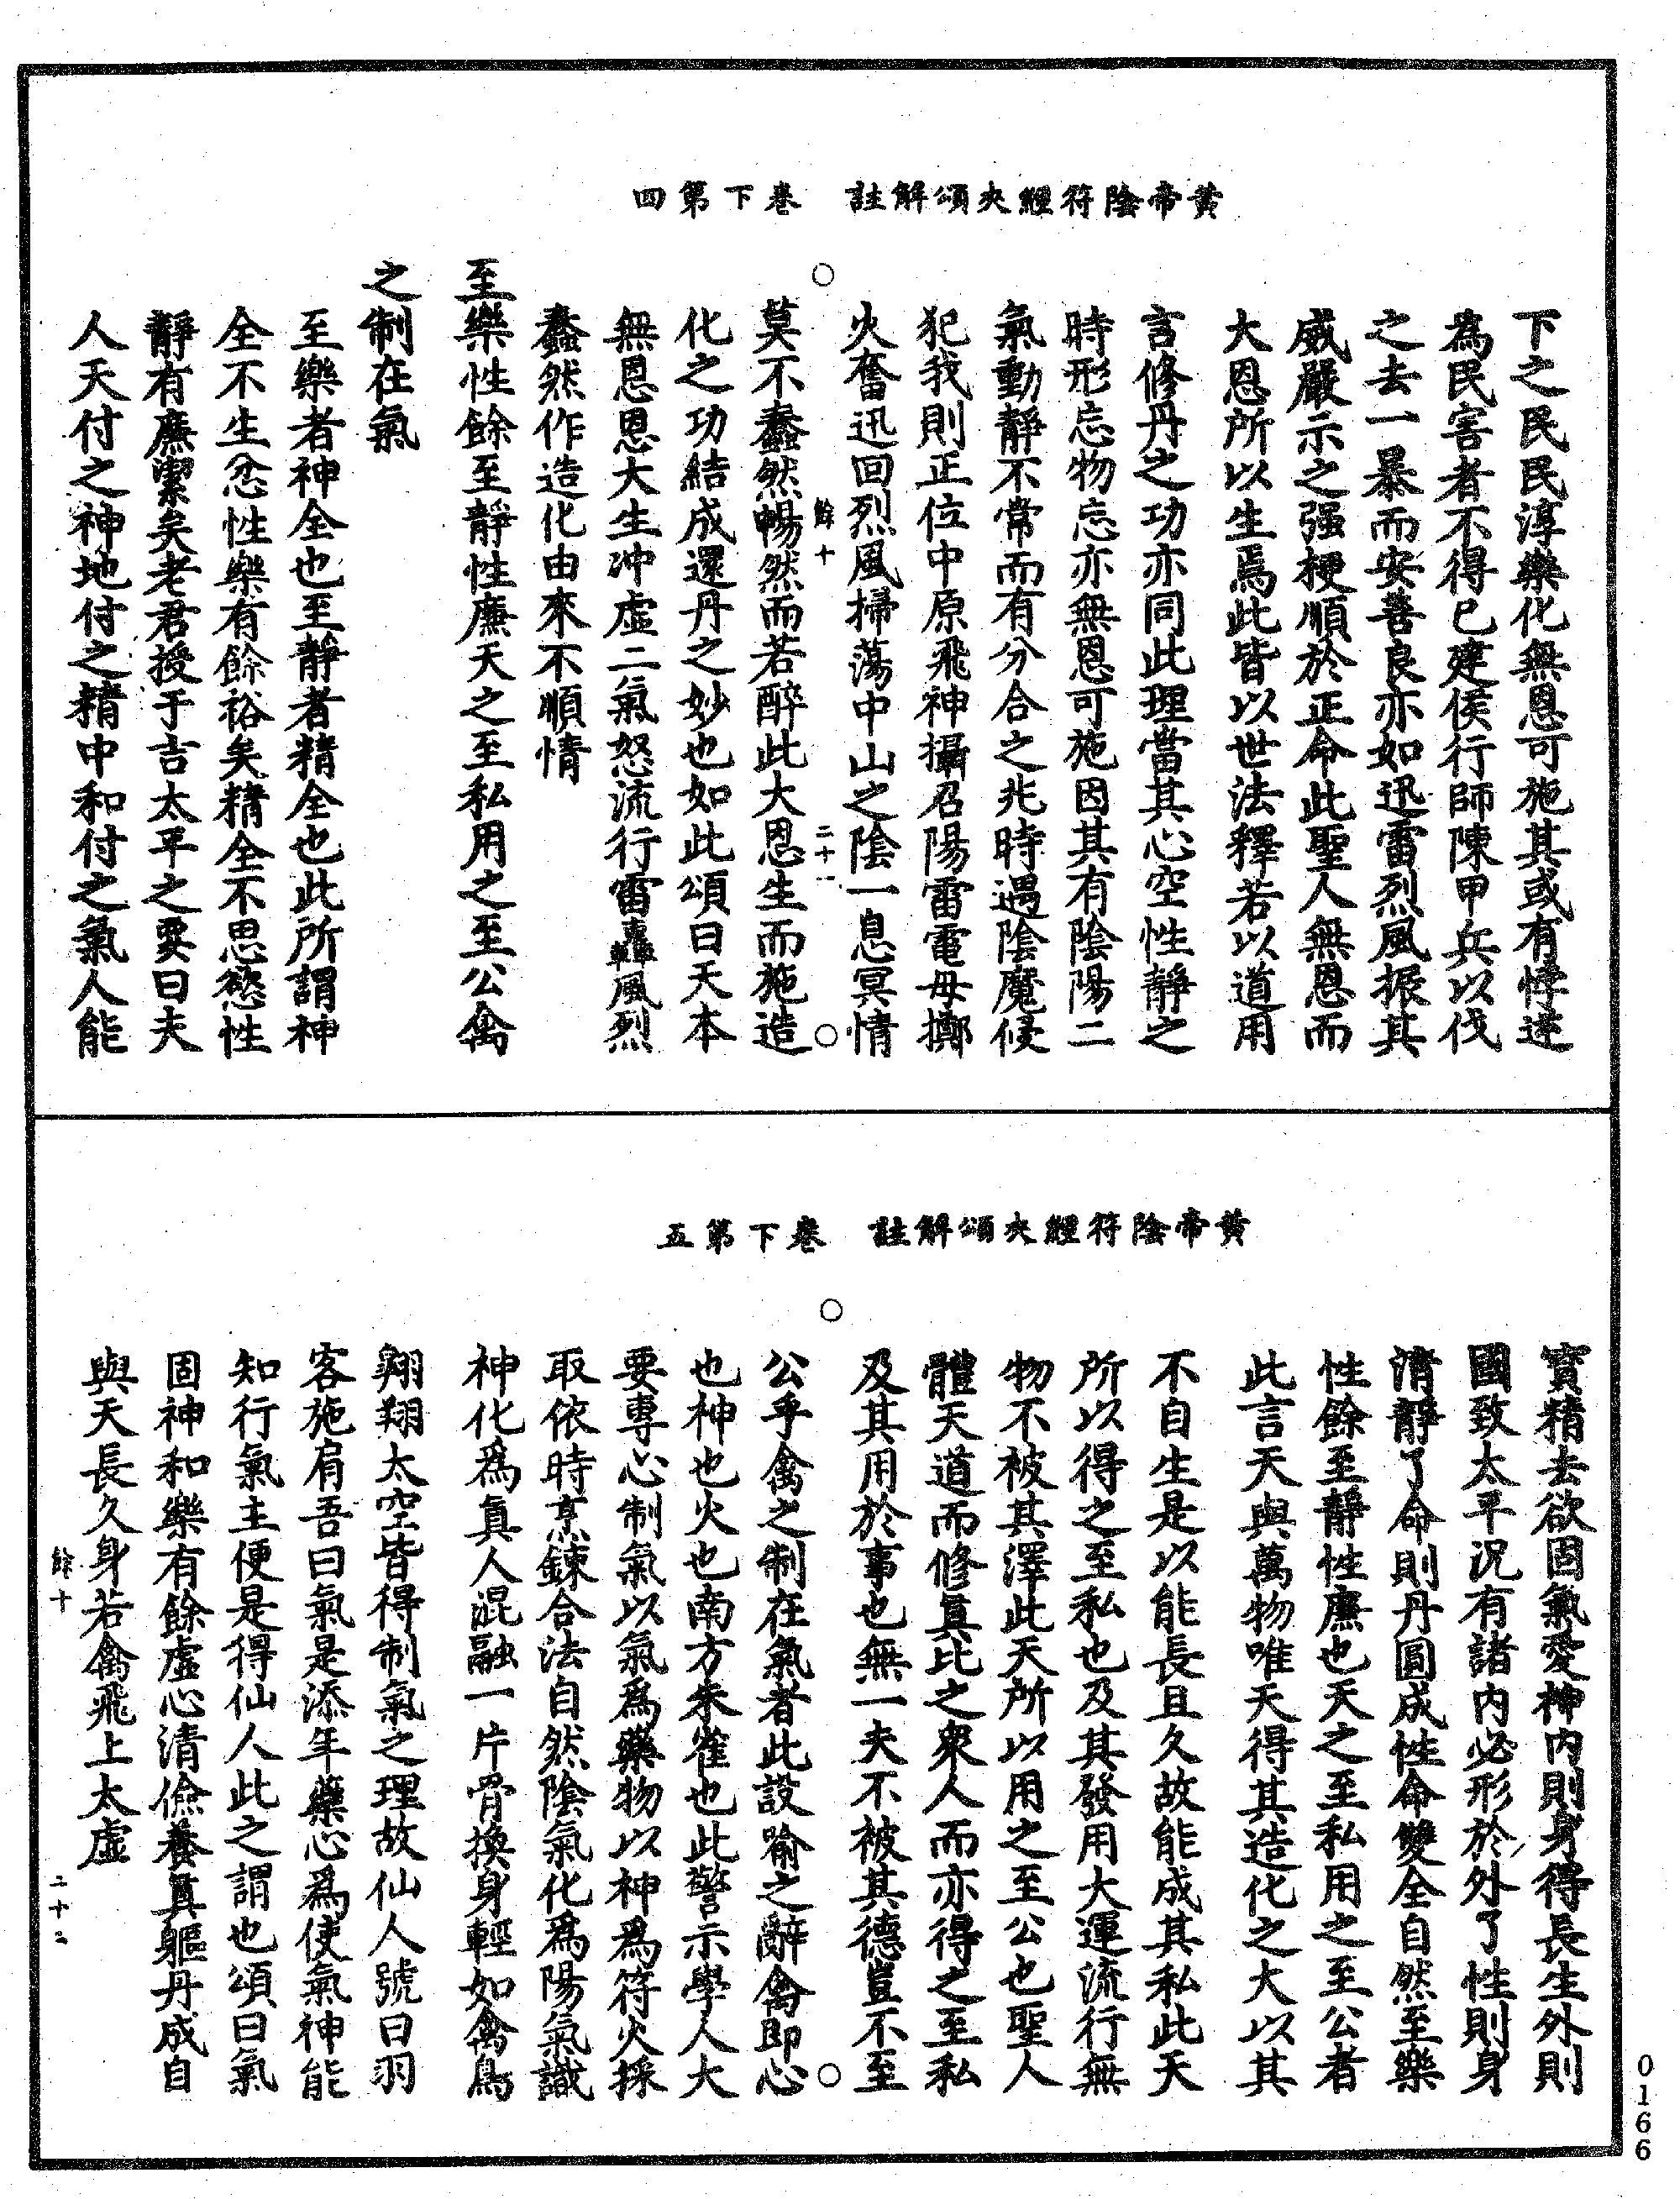 黃帝陰符經夾頌解註　卷下第四
下之民民淳樂化無恩可施其或有悖逆
為民害者不得已建侯行師陳甲兵以伐
之去一暴而安善良亦如迅雷烈風振其
威嚴示之强梗順於正命此聖人無恩而
大恩所以生焉此皆以世法釋若以道用
言修丹之功亦同此理當其心空性靜之
時形忘物忘亦無恩可施因其有陰陽二
氣動靜不常而有分合之兆時遇陰魔侵
犯我則正位中原飛神攝召陽雷電母擲
火奮迅回烈風掃蕩中山之陰一息冥情
○　餘十　二十一　○
莫不蠢然暢然而若醉此大恩生而施造
化之功結成還丹之妙也如此頌曰天本
無恩恩大生冲虛二氣怒流行雷轟風烈
蠢然作造化由來不順情
至樂性餘至靜性廉天之至私用之至公禽
之制在氣
至樂者神全也至靜者精全也此所謂神
全不生忿性樂有餘裕矣精全不思慾性
靜有廉潔矣老君授于吉太平之要曰夫
人天付之神地付之精中和付之氣人能
黃帝陰符經夾頌解註　卷下第五
寳精去欲固氣愛神内則身得長生外則
國致太平况有諸内必形於外了性則身
清靜了命則丹圓成性命雙全自然至樂
性餘至靜性廉也天之至私用之至公者
此言天與萬物唯天得其造化之大以其
不自生是以能長且久故能成其私此天
所以得之至私也及其發用大運流行無
物不被其澤此天所以用之至公也聖人
體天道而修眞比之衆人而亦得之至私
及其用於事也無一夫不被其德豈不至
○　○
公乎禽之制在氣者此設喻之辭禽即心
也神也火也南方朱雀也此警示學人大
要專心制氣以氣爲藥物以神爲符火採
取依時烹鍊合法自然陰氣化爲陽氣識
神化爲眞人混融一片骨換身輕如禽鳥
翔翔太空皆得制氣之理故仙人號曰羽
客施肩吾曰氣是添年藥心爲使氣神能
知行氣主便是得仙人此之謂也頌曰氣
固神和樂有餘虛心清儉養眞軀丹成自
與天長久身若禽飛上太虛
餘十　二十二
0166